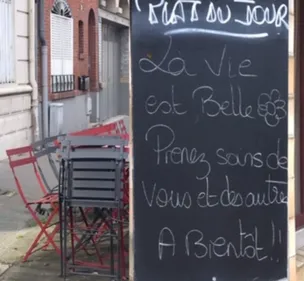 PLAT DU JOUR
La Vie
est Belle
Prenez soins de
Vous et des autres
A Bientôt!!